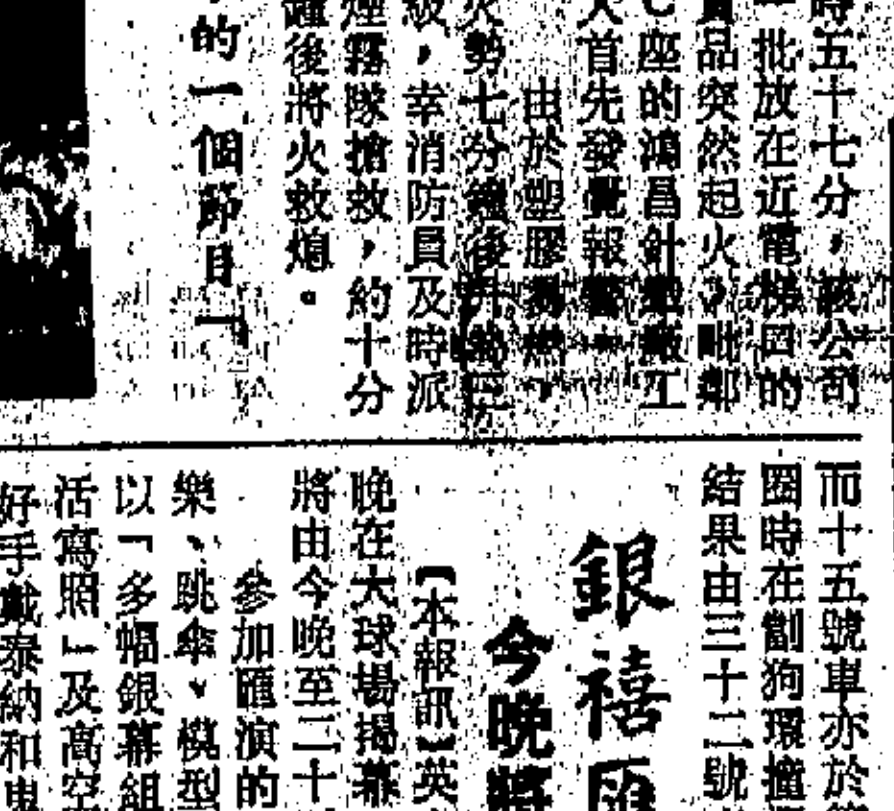 時五十七分，該公司
一批放在近電梯口的
貨品突然起火，毗鄰
座的鴻昌針織廠工
人首先發覺報警。
由於塑膠易燃，
火勢七分鐘後升為三
級，幸消防員及時派
煙霧隊搶救，約十分
鐘後將火救熄。
的一個節目一
而十五號車亦於
圈時在劏狗環撞
結果由三十二號
銀禧匯
今晚將
【本報訊】英
晚在大球場揭幕
將由今晚至二十
參加匯演的
樂、跳傘、模型
以「多幅銀幕組
活寫照」及高空
好手戴泰納和